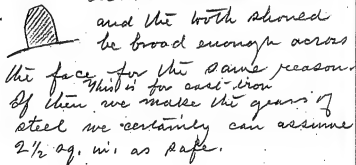 and the tooth should
be broad enough across
the face for the same reason.
This is for cast iron
If then we make the gears of
steel we certainly can assume
2 1/2 sq. in. as safe.